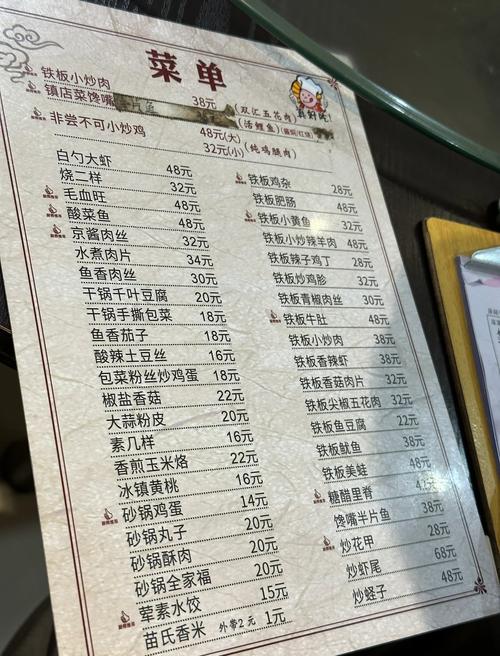 菜单
真好吃!
铁板小炒肉 38元 (双汇五花肉)
镇店菜馋嘴 (活鲤鱼)
非尝不可小炒鸡 48元(大)
32元(小) (纯鸡腿肉)
白勺大虾 48元
烧二样 32元
毛血旺 48元
酸菜鱼 48元
京酱肉丝 32元
水煮肉片 34元
鱼香肉丝 30元
干锅千叶豆腐 20元
干锅手撕包菜 18元
鱼香茄子 18元
酸辣土豆丝 16元
包菜粉丝炒鸡蛋 18元
椒盐香菇 22元
大蒜粉皮 20元
素几样 16元
香煎玉米烙 22元
冰镇黄桃 16元
砂锅鸡蛋 14元
砂锅丸子 20元
砂锅酥肉 20元
砂锅全家福 20元
荤素水饺 15元
苗氏香米 外带2元 1元
铁板鸡杂 28元
铁板肥肠 48元
铁板小黄鱼 32元
铁板小炒辣羊肉 48元
铁板辣子鸡丁 28元
铁板炒鸡胗 32元
铁板青椒肉丝 30元
铁板牛肚 48元
铁板小炒肉 38元
铁板香辣虾 38元
铁板香菇肉片 32元
铁板尖椒五花肉 32元
铁板鱼豆腐 22元
铁板鱿鱼 38元
铁板美蛙 48元
糖醋里脊 42元
馋嘴半片鱼 38元
炒花甲 28元
炒虾尾 68元
炒蛏子 48元